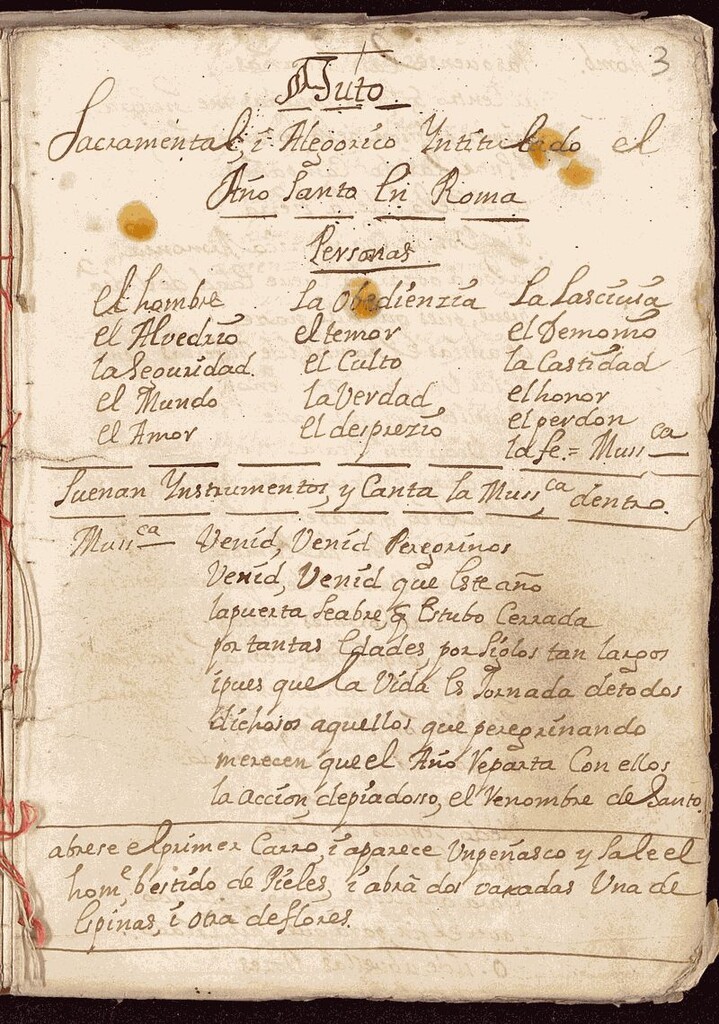 3
Auto
Sacramental, i Alegorico Yntitulado el
Año Santo En Roma
Personas
el hombre
el Alvedrio
la Seguridad.
el Mundo
el Amor
La Obedienzia
el temor
el Culto
la Verdad
el desprezio
La Lascivia
el Demonio
la Castidad
el honor
el perdon
la fe. = Muss.ca
Suenan Ynstrumentos, y Canta la Muss.ca dentro.
Muss.ca Venid, Venid Peregrinos
Venid, Venid que Este año
la puerta seabre q̃ Estubo Cerrada
por tantas Edades, por Siglos tan largos
ipues que la Vida Es Jornada detodos
dichosos aquellos que peregrinando
merecen que el Año Reparta Con ellos
la accion, depiadosso, el Renombre de Santo.
abrese el primer Carro, i aparece Vnpeñasco y Sale el
hom.e bestido de Pieles, i abrà dos Une de
Espinas, i otra deflores.